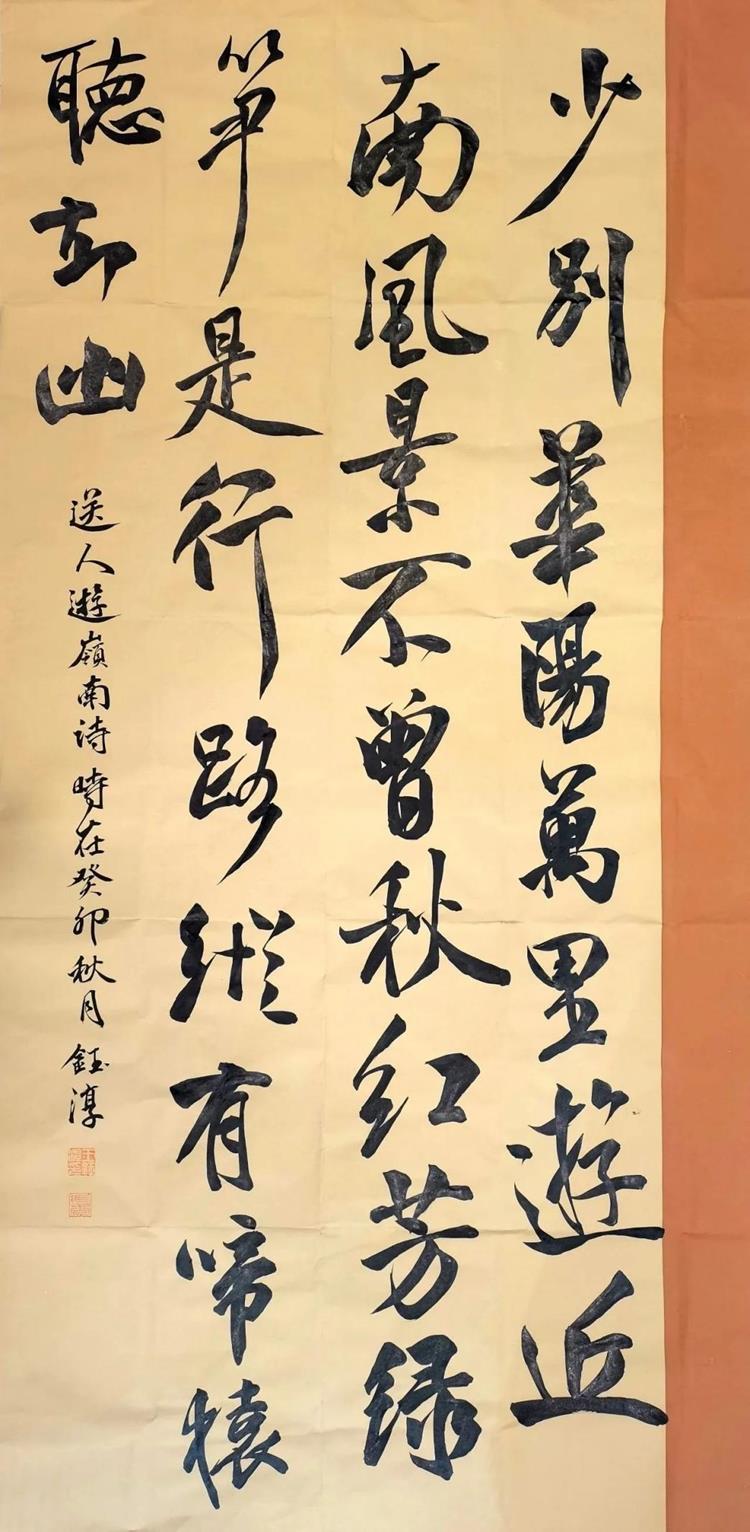 少别華陽萬里遊近
南風景不曾秋红芳绿
笋是行路縱有啼猿
聽却幽
送人遊嶺南诗 時在癸卯秋月 鈺淳